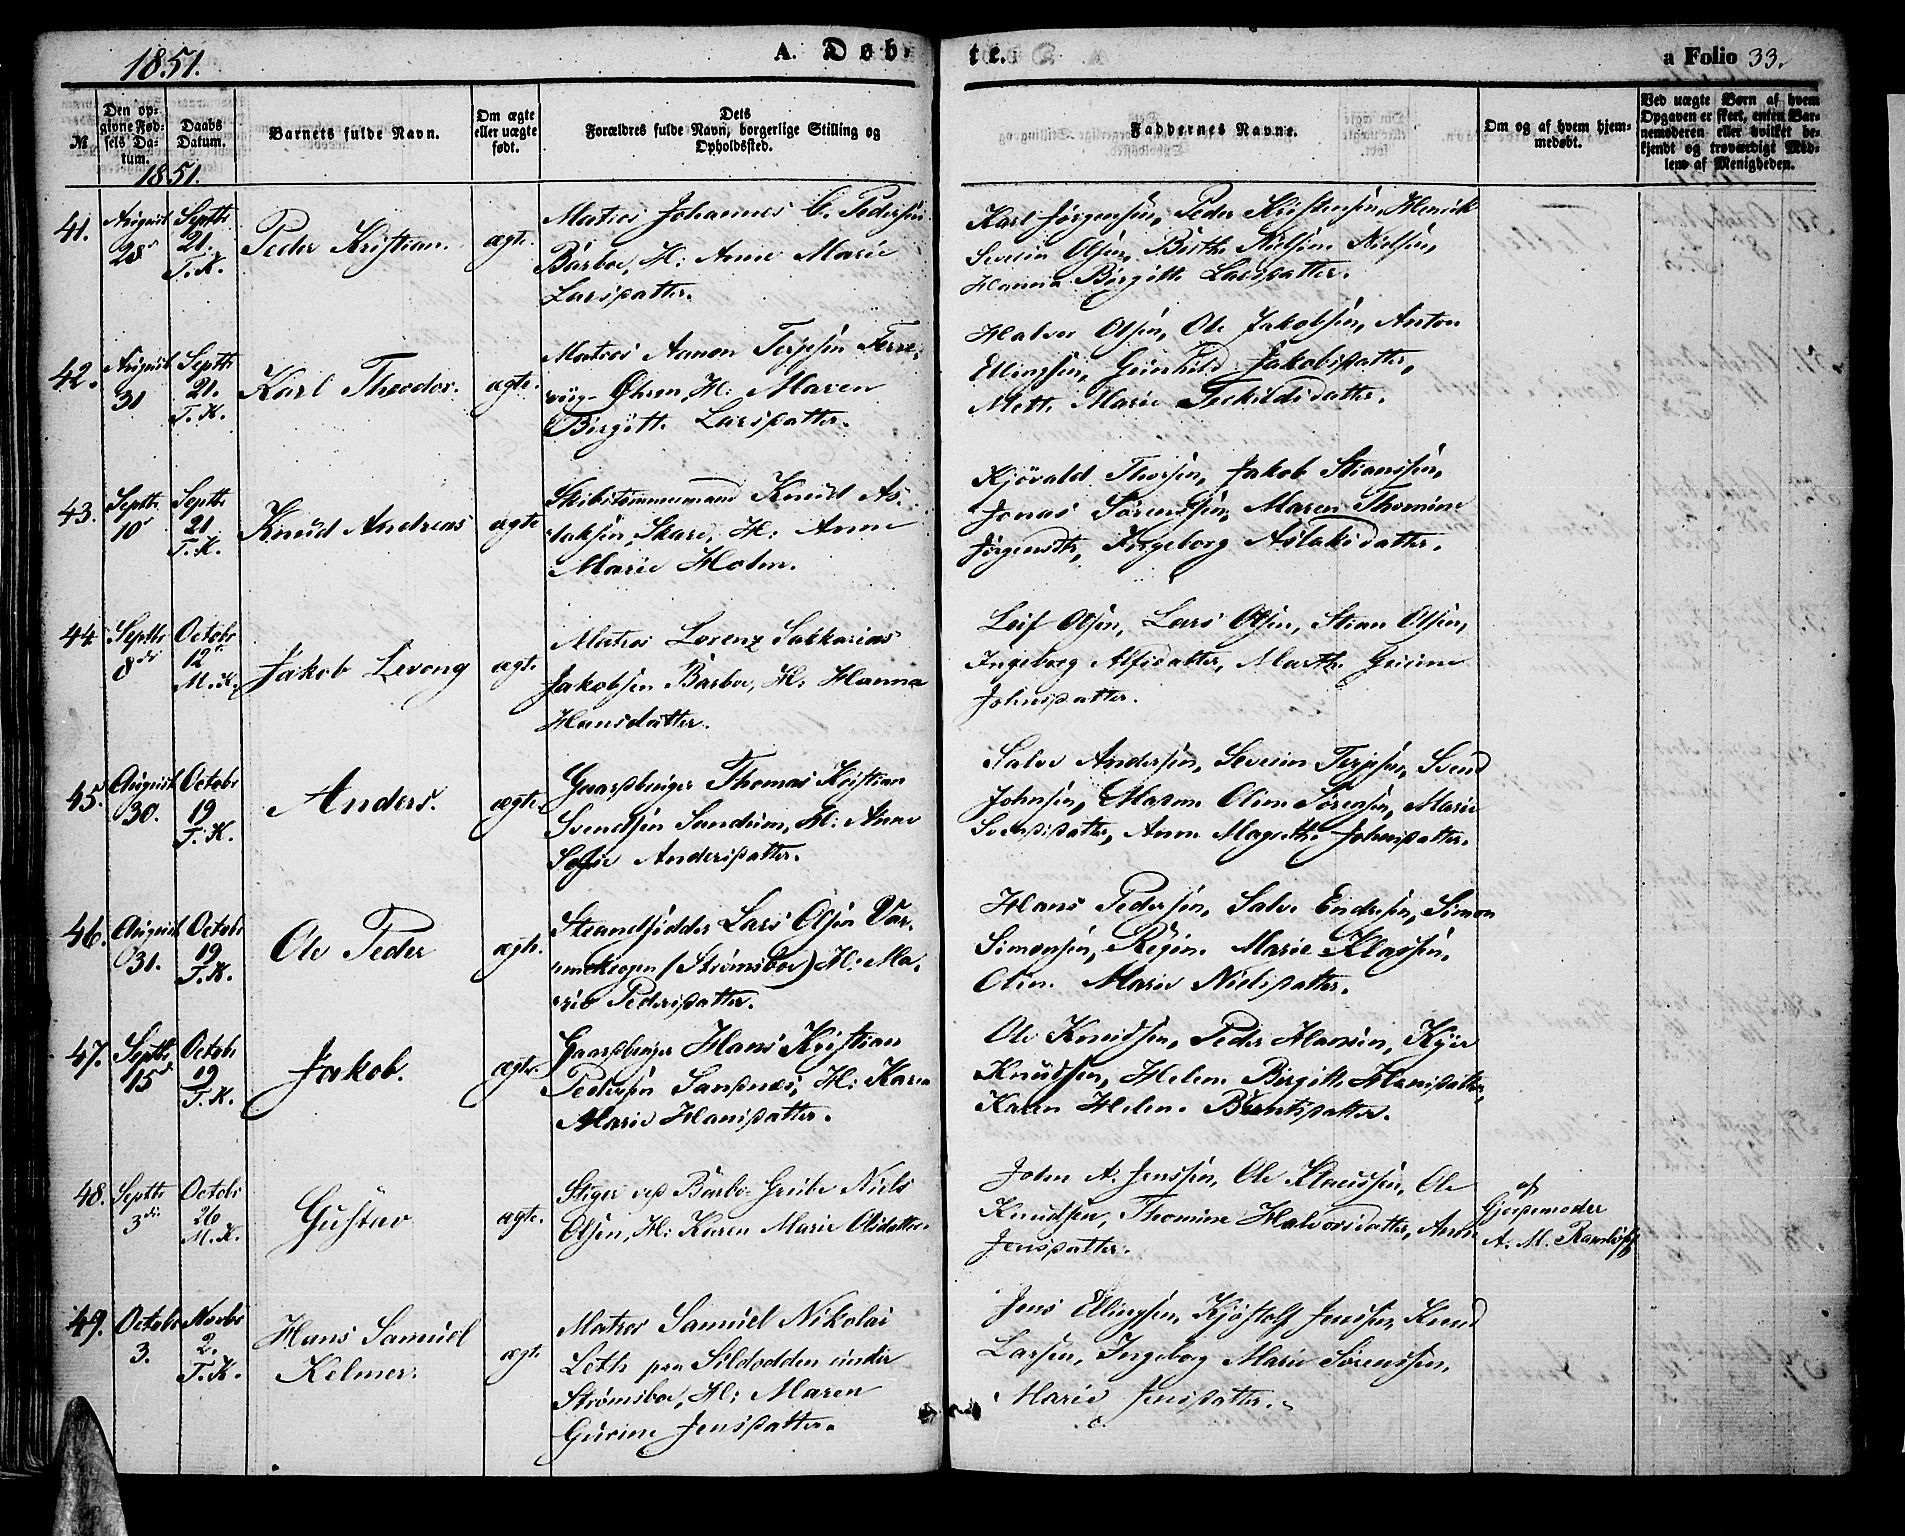 1851.
A. Døb-
te.
a Folio 33.
№
Den op-
givne Fød-
sels Da-
tum.
Daabs
Datum.
Barnets fulde Navn.
Om ægte
eller uægte
født.
Dets
Forældres fulde Navn, borgerlige Stilling og
Opholdssted.
Faddernes Navne.
Om og af hvem hjem-
medøbt.
Ved uægte Børn af hvem
Opgaven er skeet, enten Bar-
nemoderen eller hvilket be-
kjendt og troværdigt Med-
lem af Menigheden.
1851.
41.
August
28
Septbr
21.
T. K.
Peder Kristian.
ægte.
Matros Johannes C. Pedersen
Barboe, H: Anne Marie
Larsdatter.
Karl Jørgensen, Peder Kristensen, Henrik
Severin Olsen, Birthe Nielsine Nielsen,
Hanna Birgitte Larsdatter.
42.
August
31
Septbr
21.
T. K.
Karl Theodor.
ægte.
Matros Aanon Terjesen
Øhren, H: Maren
Birgitte Larsdatter.
Halvor Olsen, Ole Jakobsen, Anton
Ellingsen, Gunhild Jakobsdatter,
Mette Marie Terkildsdatter.
43.
Septbr
10
Septbr
21.
T. K.
Knud Andreas
ægte
Skibstømmermand Knud As-
laksen, Skare, H: Anne
Marie Holm.
Kjøvald Thorsen, Jakob Stianssen,
Jonas Sørendsen, Maren Thomine
Jørgensdtr, Ingeborg Aslaksdatter.
44
Septbr
8de
Octobr
12
M. K.
Jakob Levong
ægte.
Matros Lorenz Sakkarias
Jakobsen Barboe, H: Hanna
Hansdatter.
Leif Olsen, Lars Olsen, Stian Olsen,
Ingeborg Alfsdatter, Marthe Gurine
Johnsdatter.
45.
August
30.
Octobr
19
T. K.
Anders.
ægte.
Gaardbruger Thomas Kristian
Svendsen Sandum, H: Anne
Sofie Andersdatter.
Salve Andersen, Severin Terjesen, Svend
Johnsen, Maren Oline Sørensen, Marie
Svendsdatter, Anne Magrethe Johnsdatter.
46.
August
31.
Octobr
19
T. K.
Ole Peder
ægte.
Strandsidder Lars Olsen Var-
mekrogen (Strømsboe) H: Ma-
rie Pedersdatter.
Hans Pedersen, Salve Endresen, Simon
Simonsen, Regine Marie Klassen,
Oline Marie Nielsdatter.
47.
Septbr
15
Octobr
19
T. K.
Jakob.
ægte.
Gaardbruger Hans Kristian
Pedersen Sandnes, H: Karen
Marie Hansdatter.
Ole Knudsen, Peder Hansen, Kjer
Knudsen, Helene Birgitte Hansdatter,
Karen Helene Berntsdatter.
48.
Septbr
3die
Octobr
26
M. K.
Gustav
ægte.
Stiger ved Barbo Grube Niels
Olsen, H: Karen Marie Olsdatter.
John A. Jenssen, Ole Klaussen, Ole
Knudsen, Thomine Halvorsdatter, Anne
Jensdatter.
af
Gjordemoder
A. M.
49.
Octobr
3.
Novbr
2.
T. K.
Hans Samuel
Kelmer.
ægte
Matros Samuel Nikolai
Loth paa Sildodden under
Strømsboe, H: Maren
Gurine Jensdatter.
Jens Ellingsen, Kjøstolf Jenssen, Knud
Larsen, Ingeborg Marie Sørenssen,
Marie Jensdatter.